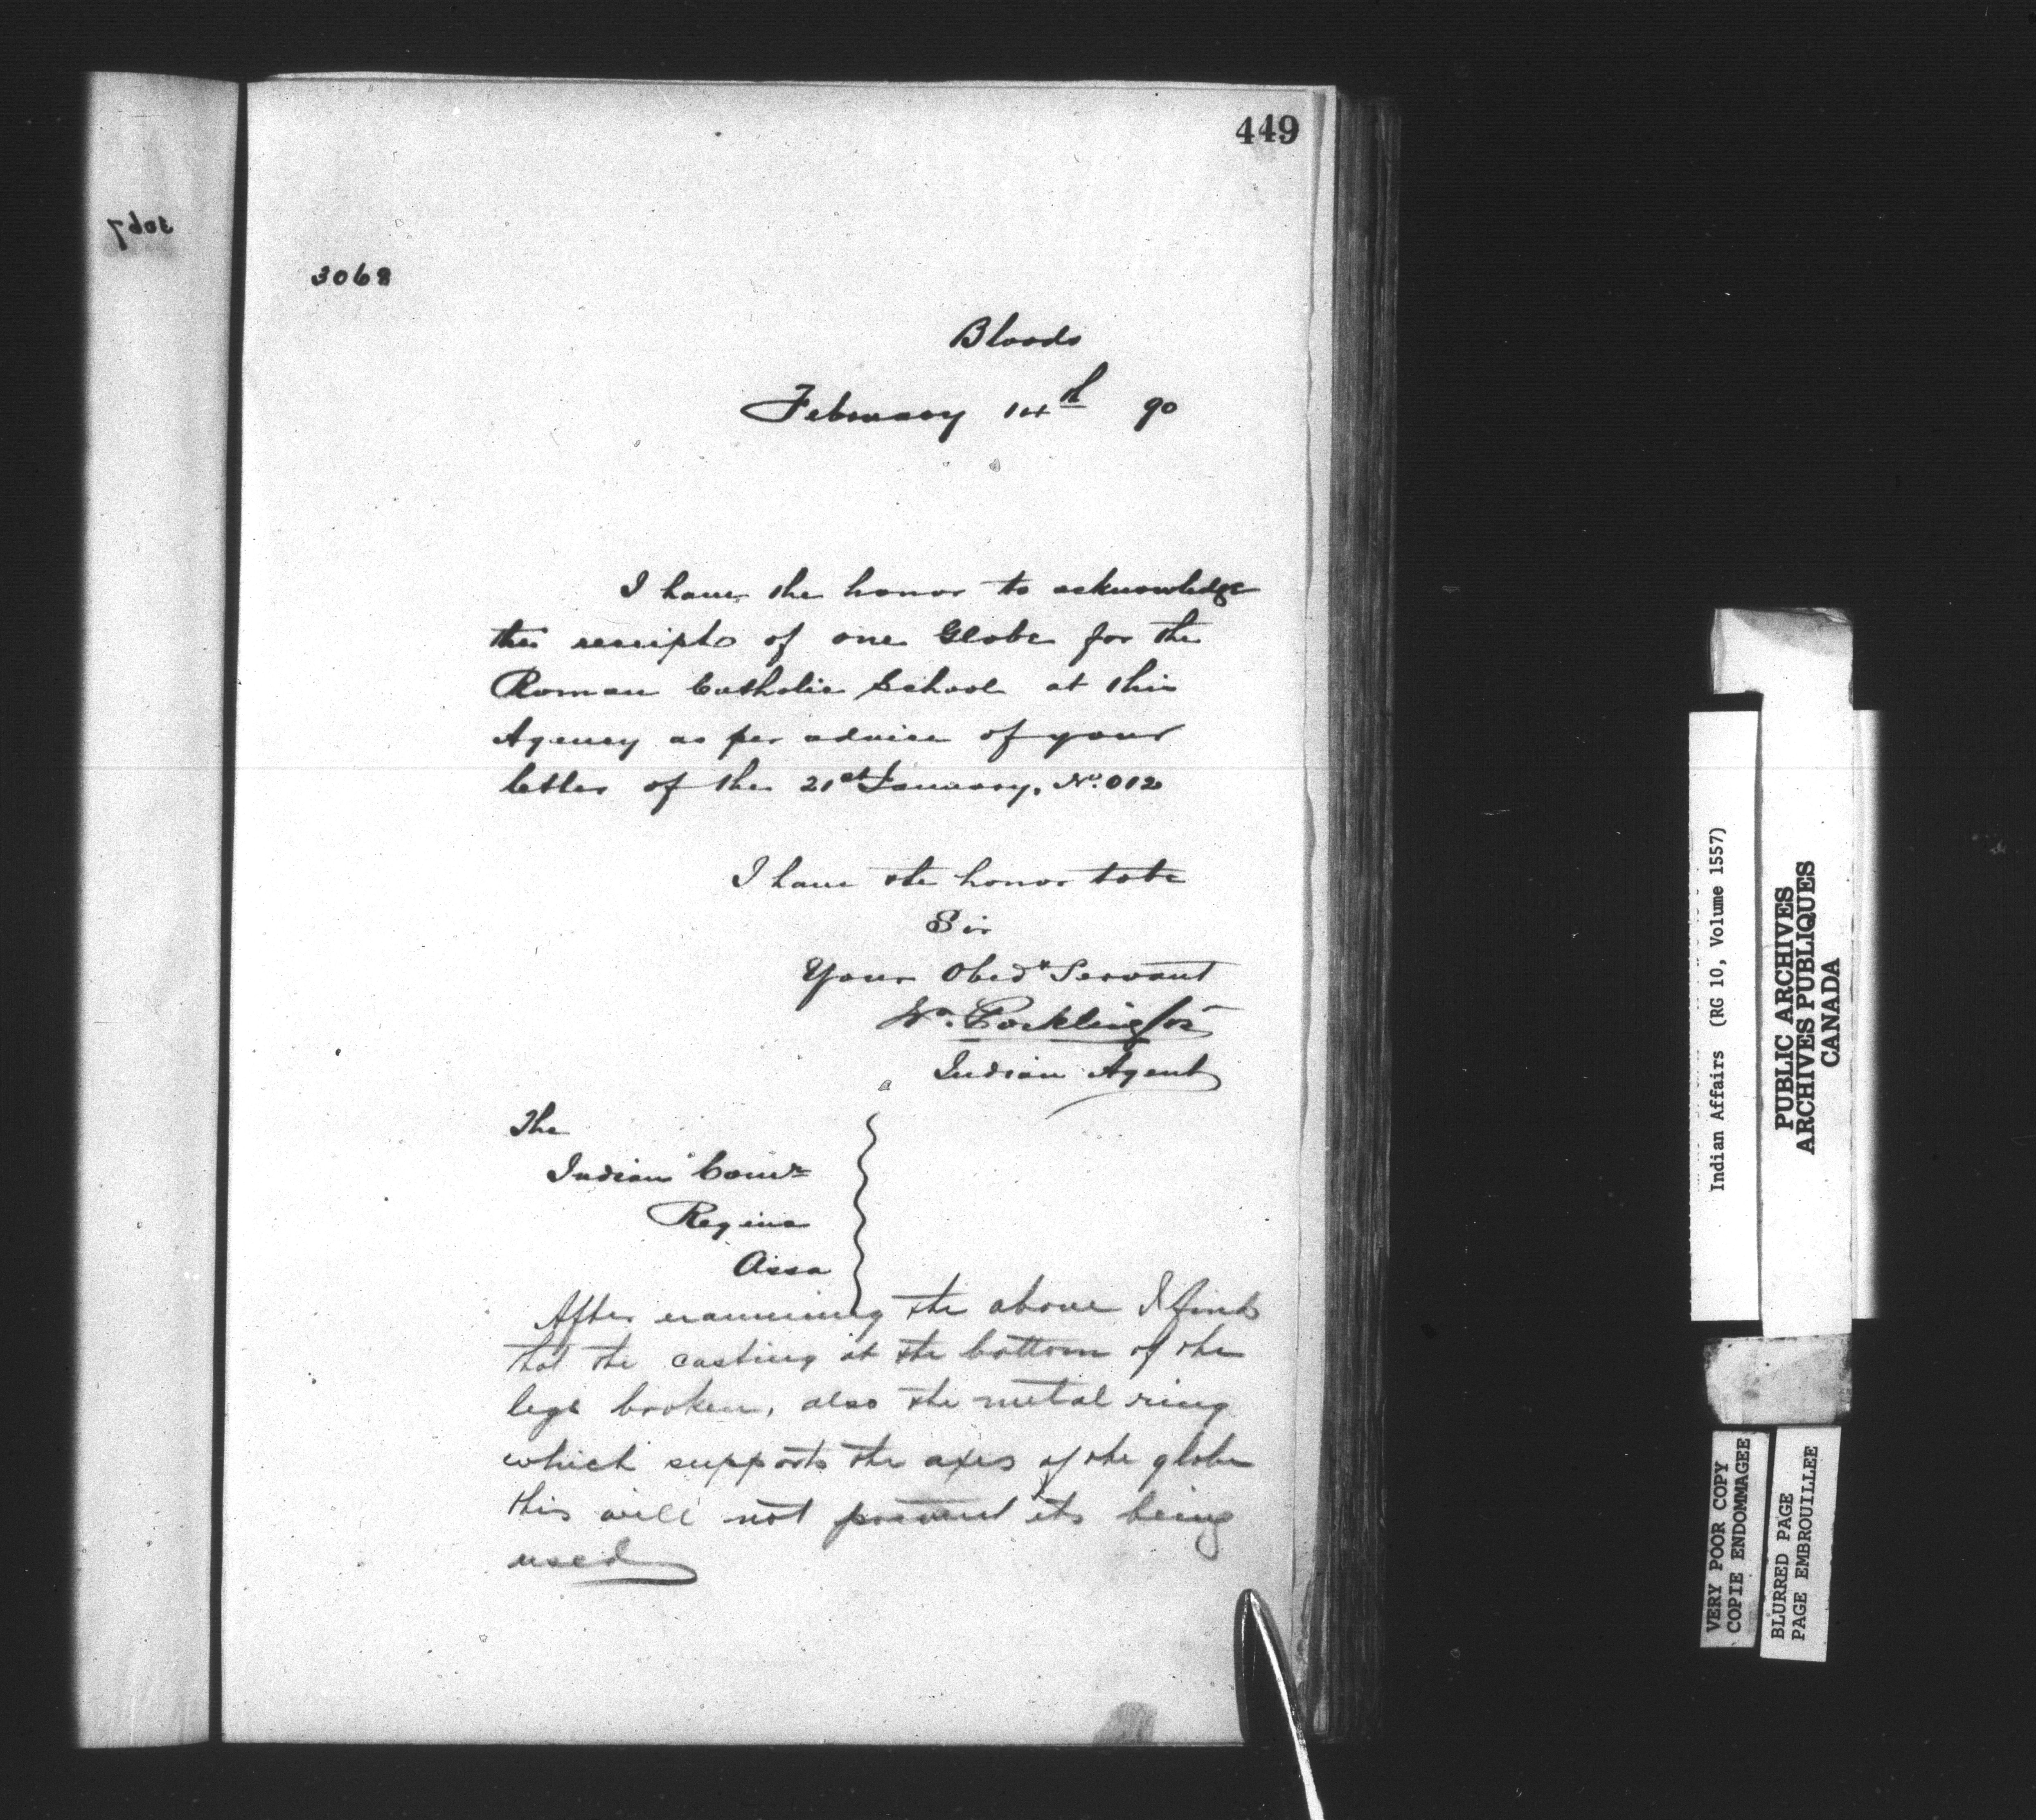 449
3067
3068
Bloods
February 14th 90
I have the honor to acknowledge
the receipt of one Globe for the
Roman Catholic School at this
Agency as per advice of your
letter of the 21st January, No. 012
I have the honor to be
Sir
Your Obedt Servant
Wm. Pocklington
Indian Agent
The
Indian Comr
Regina
Assa
After examining the above I find
that the casting at the bottom of the
legs broken, also the metal ring
which supports the axis of the globe
this will not prevent its being
used
Indian Affairs (RG 10, Volume 1557)
PUBLIC ARCHIVES
ARCHIVES PUBLIQUES
CANADA
VERY POOR COPY
COPIE ENDOMMAGEE
BLURRED PAGE
PAGE EMBROUILLEE